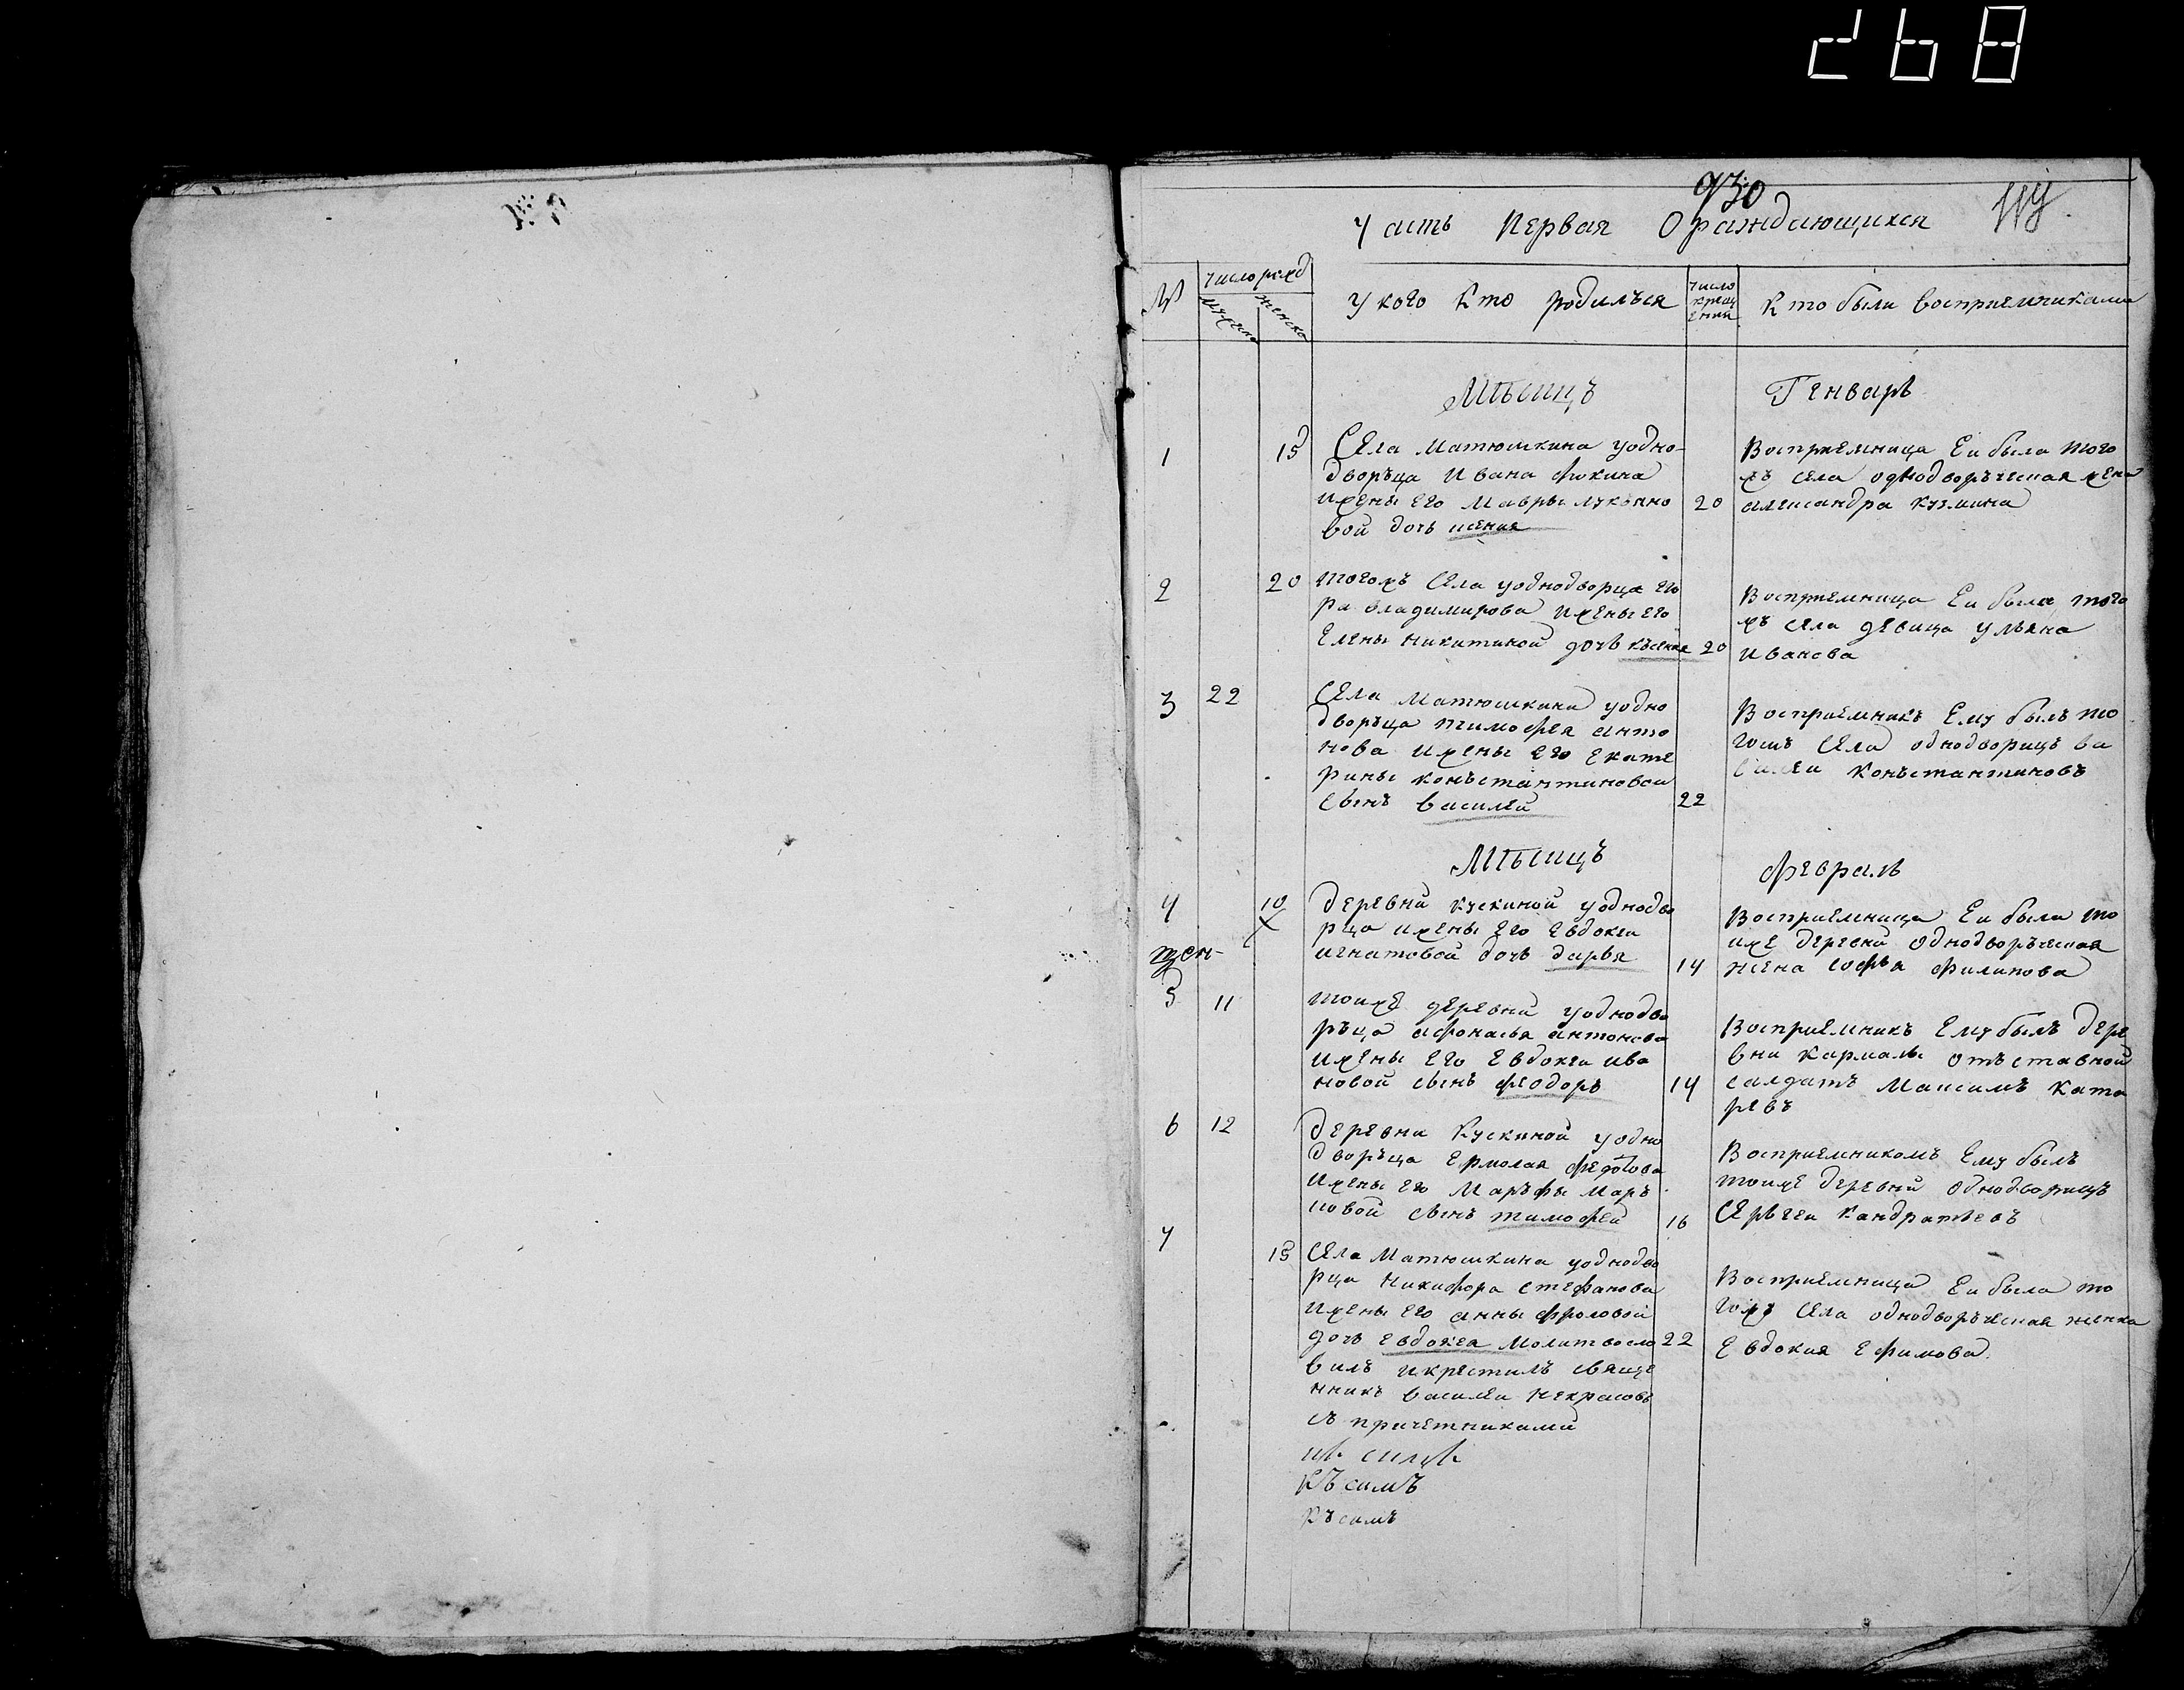 268
930
Часть Первая О раждающихся
№
число рожд
мужеска
женска
У кого Кто родилъся
число крещений
Кто были восприемниками
Мѣсицъ Генварь
1
15
Села Матюшкина уодно-
дворъца Ивана Фокина
ижены Его Мавры лукьяно
вой дочь ксения
20
Восприемница Еи была того
жъ села однодворъческая жена
александра кузмина
2
20
тогожъ Села уоднодворца его
ра владимирова ижены его
Елены никитиной дочь къения
20
Восприемница Еи была того
жъ села девица ульяна
иванова
3
22
Села Матюшкина уодно
дворъца тимофея анто
нова ижены его екате
рины конъстантиновои
сынъ василей
22
Восприемникъ Ему былъ то
гожъ Села однодворицъ ва
силеи Конъстантиновъ
Мѣсицъ Февраль
4
жен-
10
деревни кускиной уоднодво
рца ижены его Евдокеи
игнатовой дочь дарья
14
Восприемница Еи была то
иже деревни однодворъческая
жена софья филипова
5
11
тоиже деревни уоднодво
ръца афонасья антонова
ижены Его Евдокеи ива
новой сынъ феодоръ
14
Восприемникъ Ему былъ дере
вни кармалы отъставной
салдатъ Максимъ Ката
ревъ
6
12
деревни Кускиной уодно
дворъца Ермолая Федотова
ижены его Маръфы Маръ
ковой сынъ тимофей
16
Восприемникомъ Ему былъ
тоиже деревни однодворицъ
Серьгеи кандратьевъ
7
15
Села Матюшкина уоднодво
рца Никифора стефанова
ижены его анны фроловой
дочь евдокея Молитвосло
вилъ икрестилъ свяще
нникъ василеи Некрасовъ
съ причетниками
22
Восприемница Еи была то
гожъ Села однодворъческая женка
Евдокия Ефимова
Къ симъ
къ симъ